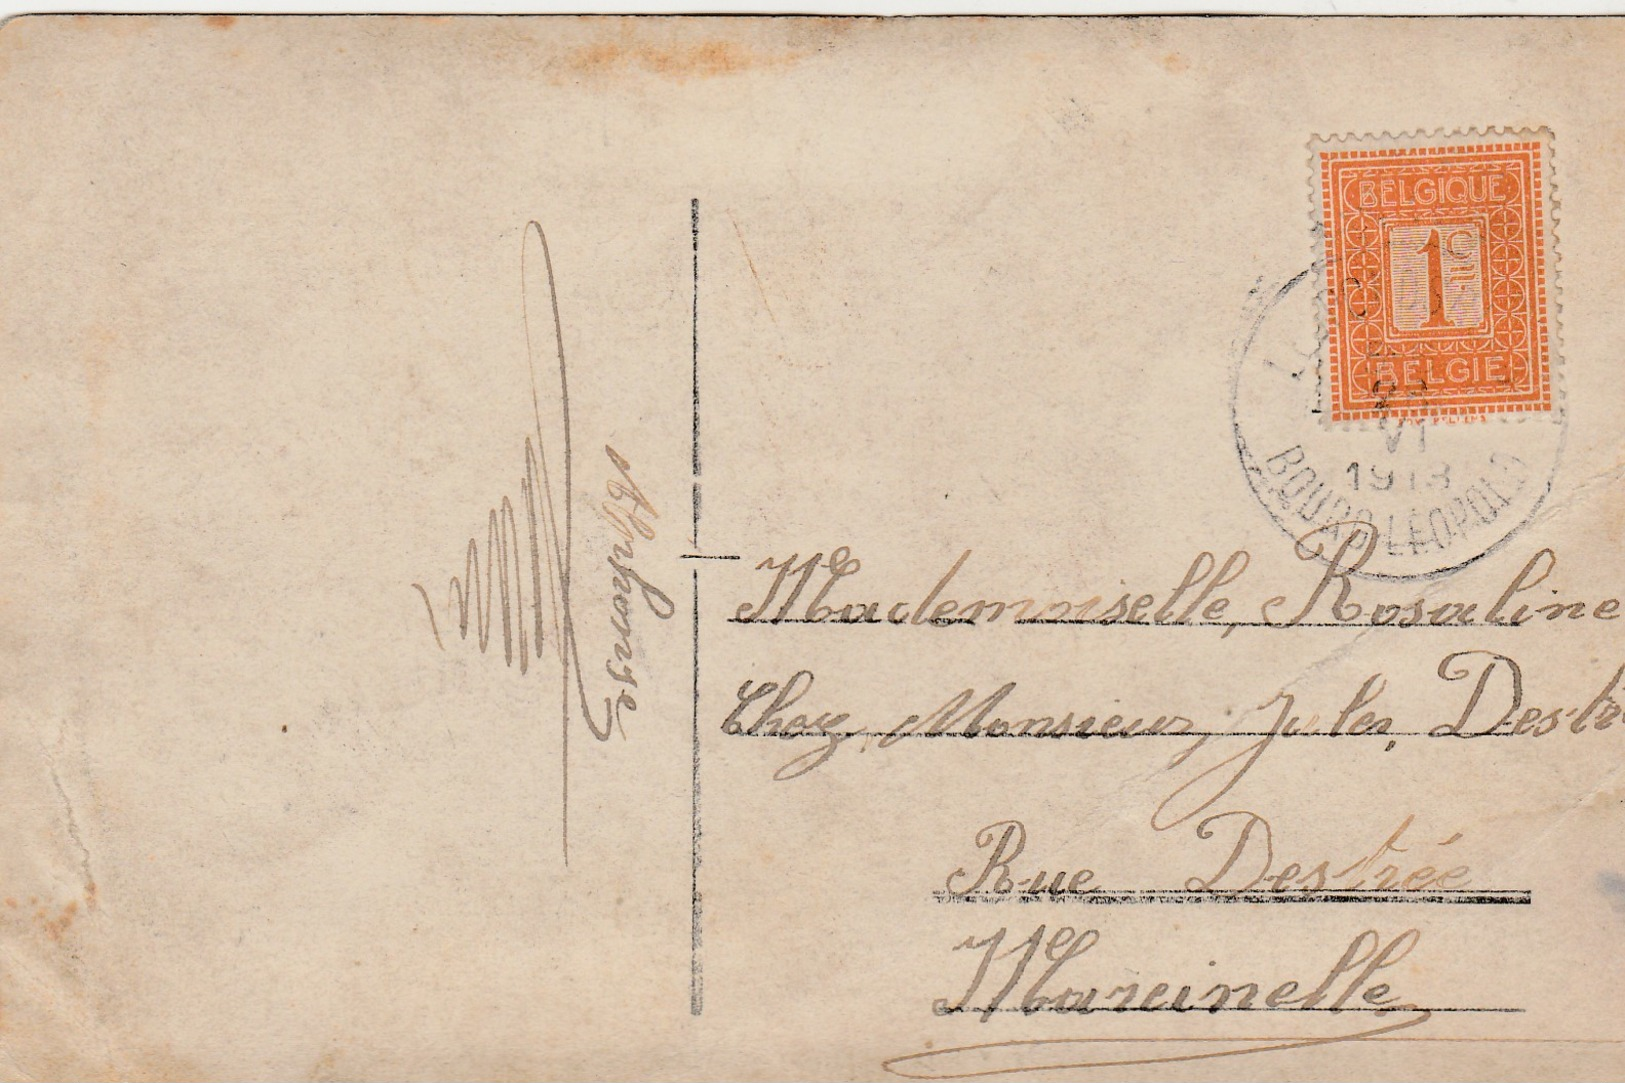 BELGIQUE
1c
BELGIE
1913
BOURG-LEOPOLD
Alphonse
Mademoiselle, Rosaline
Chez, Monsieur, Jules, Destré
Rue Destrée
Marcinelle